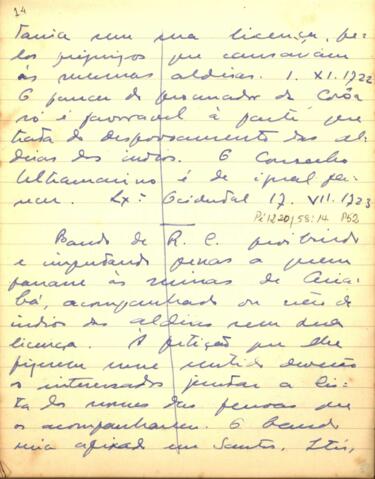 14
tania sem sua licença, pe-
los prejuizos que causavam
as mesmas aldeias. 1. XI. 1722
O parecer do procurador da Corôa
só é favoravel à parte que
trata do despovoamento das al-
deias dos indios. O Conselho
Ultramarino é de igual pare-
cer. Lxª Ocidental 17. VII. 1723
P1220, 58:14 P52
Bando de R. C. proibindo
e impondo penas a quem
passasse às minas de Cuia-
bá, acompanhado ou não de
indios das aldeias sem sua
licença. À petição que lhe
fizessem nesse sentido deverão
os interessados juntar a lis-
ta dos nomes das pessoas que
os acompanharem. O bando
seria afixado em Santos, Itú,